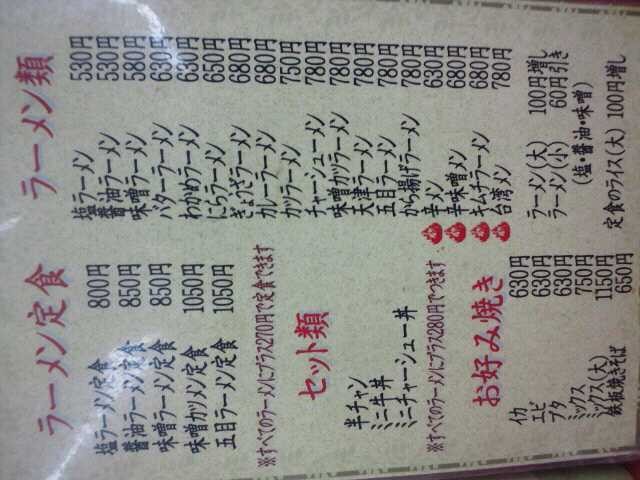 ラーメン類
塩ラーメン 530円
醤油ラーメン 530円
味噌ラーメン 580円
バターラーメン 630円
わかめラーメン 630円
にらラーメン 650円
ぎょうざラーメン 680円
カレーラーメン 680円
カツラーメン 750円
チャーシューメン 780円
味噌カツラーメン 780円
天津ラーメン 780円
五目ラーメン 780円
から揚げラーメン 780円
辛メン 630円
辛味噌メン 680円
キムチラーメン 680円
台湾メン 780円
ラーメン(大) 100円増し
ラーメン(小) 60円引き
(塩・醤油・味噌)
定食のライス(大) 100円増し
ラーメン定食
塩ラーメン定食 800円
醤油ラーメン定食 850円
味噌ラーメン定食 850円
味噌カツメン定食 1050円
五目ラーメン定食 1050円
※すべてのラーメンにプラス270円で定食できます
セット類
半チャン
ミニ牛丼
ミニチャーシュー丼
※すべてのラーメンにプラス280円でつきます
お好み焼き
イカ 630円
エビ 630円
ブタ 630円
ミックス 750円
ミックス(大) 1150円
鉄板焼きそば 650円